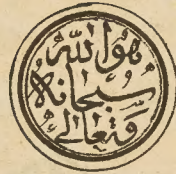 هو الله
سبحانه
وتعالى